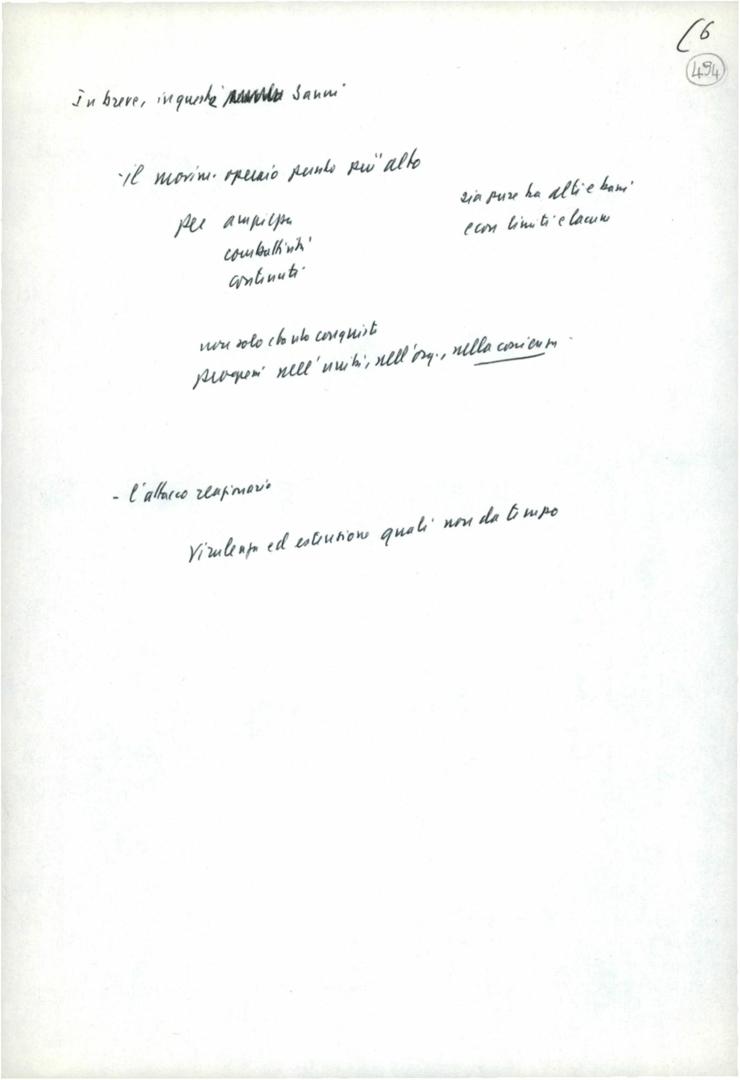 6
494
In breve, in questi 3 anni
- il movim. operaio punto più alto
per ampiezza
combattività
continuità
sia pure tra alti e bassi
e con limiti e lacune
non solo conquiste
progressi nell'unità, nell'org., nella coscienza.
- l'attacco reazionario
Virulenza ed estensione quali non da tempo